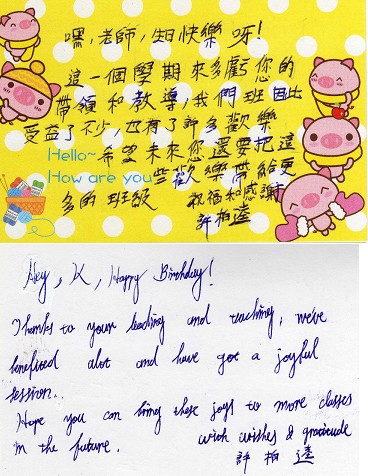 嘿,老師,生日快樂呀!
這一個學期來多虧您的
帶領和教導,我們班因此
受益了不少,也有了許多歡樂
Hello~ 希望未來您還要把這
How are you 些歡樂帶給更
多的班級 祝福和感謝
許柏逵
Hey, K, Happy Birthday!
Thanks to your leading and teaching, we've
benefited alot and have got a joyful
session.
Hope you can bring these joys to more classes
in the future. with wishes & gratitude
許柏逵